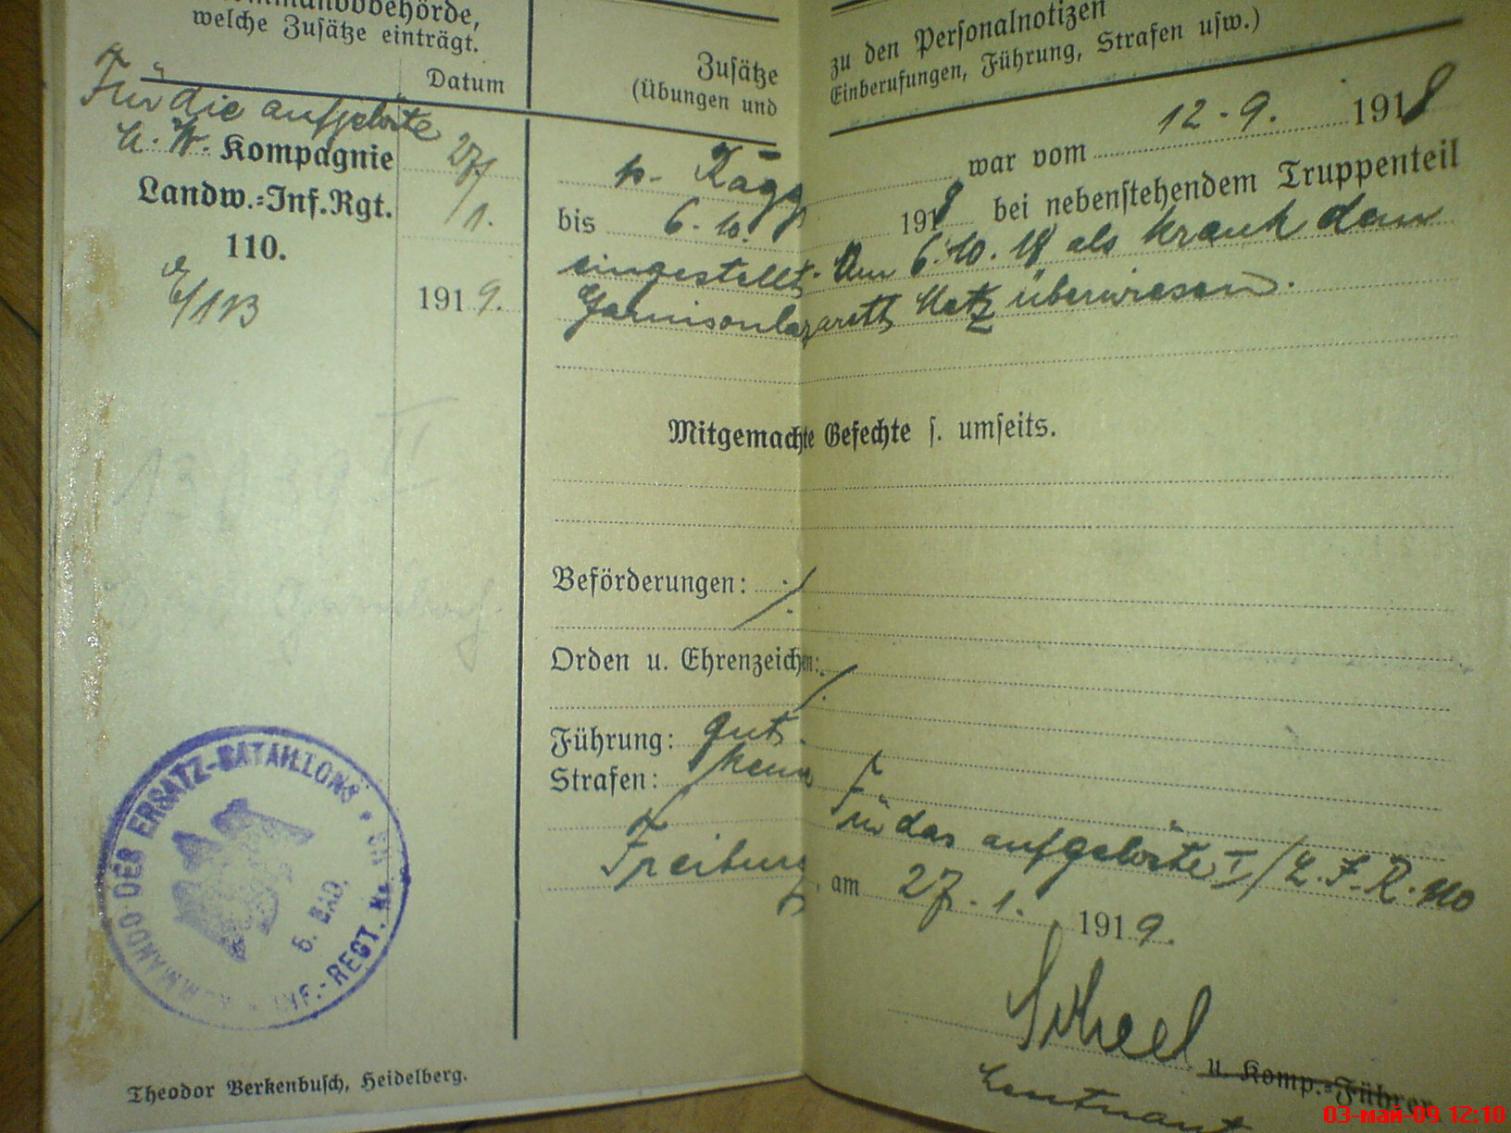 Kommandobehörde,
welche Zusätze einträgt.
Datum
Für die aufgelöste
M. W. Kompagnie
Landw.=Inf.Rgt.
110.
E/113
27/
1.
1919.
Zusätze zu den Personalnotizen
(Übungen und Einberufungen, Führung, Strafen usw.)
p. Kägy war vom 12.9. 1918
bis 6.10. 1918 bei nebenstehendem Truppenteil
eingestellt. Am 6.10.18 als krank dem
Garnisonlazarett Metz überwiesen.
Mitgemachte Gefechte s. umseits.
Beförderungen: ./.
Orden u. Ehrenzeichen: ./.
Führung: gut.
Strafen: keine
Für das aufgelöste I/L.I.R. 110
Freiburg, am 27.1. 1919.
Scheel
Leutnant u. Komp.=Führer
KOMMANDO DER ERSATZ-BATAILLONS
6. BAD. INF.-REGT. No
Theodor Berkenbusch, Heidelberg.
03-май-09 12:10